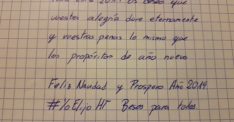 que
vuestra alegría dure eternamente
y vuestras penas lo mismo que
los propósitos de año nuevo
Feliz Navidad y Prospero Año 2014.
#YoElijoHT Besos para todos.